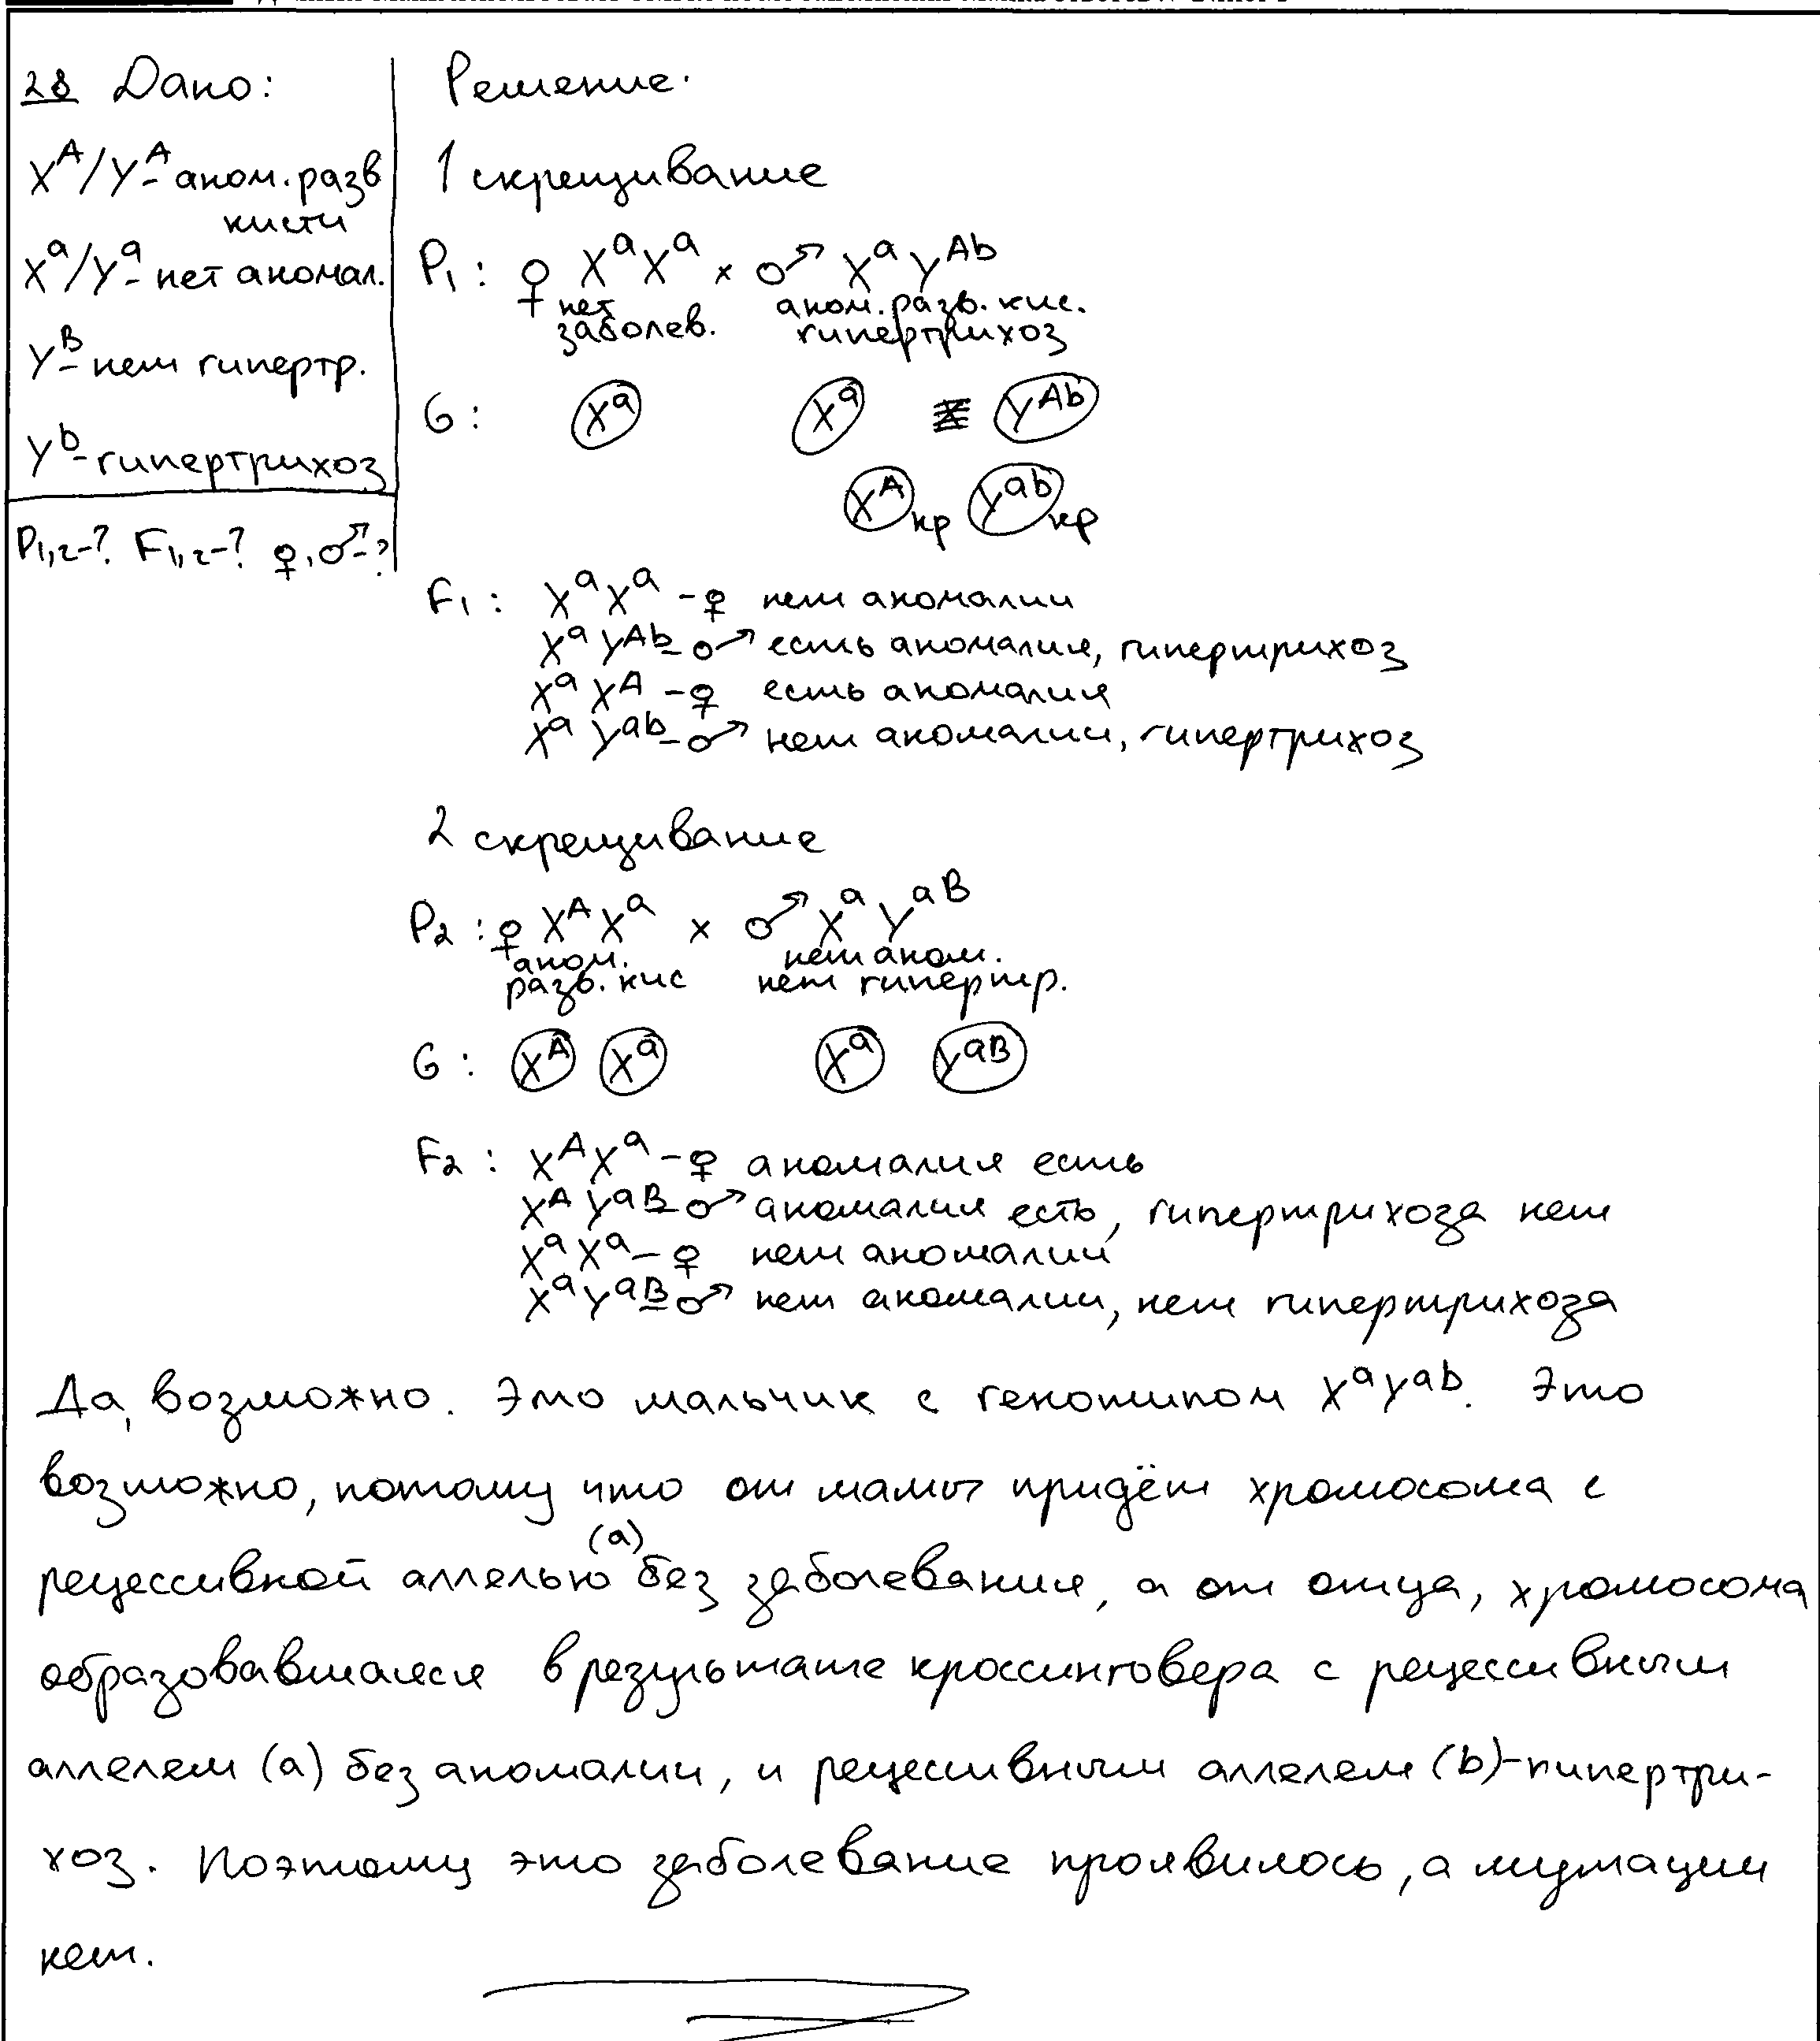 28 Дано:
X^A/Y^A - аном. разв
кисти
X^a/Y^a - нет аномал.
Y^B - нет гипертр.
Y^b - гипертрихоз
P1,2-? F1,2-? ♀,♂-?
Решение:
1 скрещивание
P1: ♀ X^a X^a × ♂ X^a Y^Ab
нет аном. разв. кис.
заболев. гипертрихоз
G: X^a X^a Y^Ab
X^A кр Y^ab кр
F1: X^a X^a - ♀ нет аномалии
X^a Y^Ab - ♂ есть аномалия, гипертрихоз
X^a X^A - ♀ есть аномалия
X^a Y^ab - ♂ нет аномалии, гипертрихоз
2 скрещивание
P2: ♀ X^A X^a × ♂ X^a Y^aB
аном. нет аном.
разв. кис нет гипертр.
G: X^A X^a X^a Y^aB
F2: X^A X^a - ♀ аномалия есть
X^A Y^aB - ♂ аномалия есть, гипертрихоза нет
X^a X^a - ♀ нет аномалии
X^a Y^aB - ♂ нет аномалии, нет гипертрихоза
Да, возможно. Это мальчик с генотипом X^a Y^ab. Это
возможно, потому что от мамы придёт хромосома с
рецессивной аллелью (a) без заболевания, а от отца, хромосома
образовавшаяся в результате кроссинговера с рецессивным
аллелем (a) без аномалии, и рецессивным аллелем (b)-гипертри-
хоз. Поэтому это заболевание проявилось, а мутации
нет.